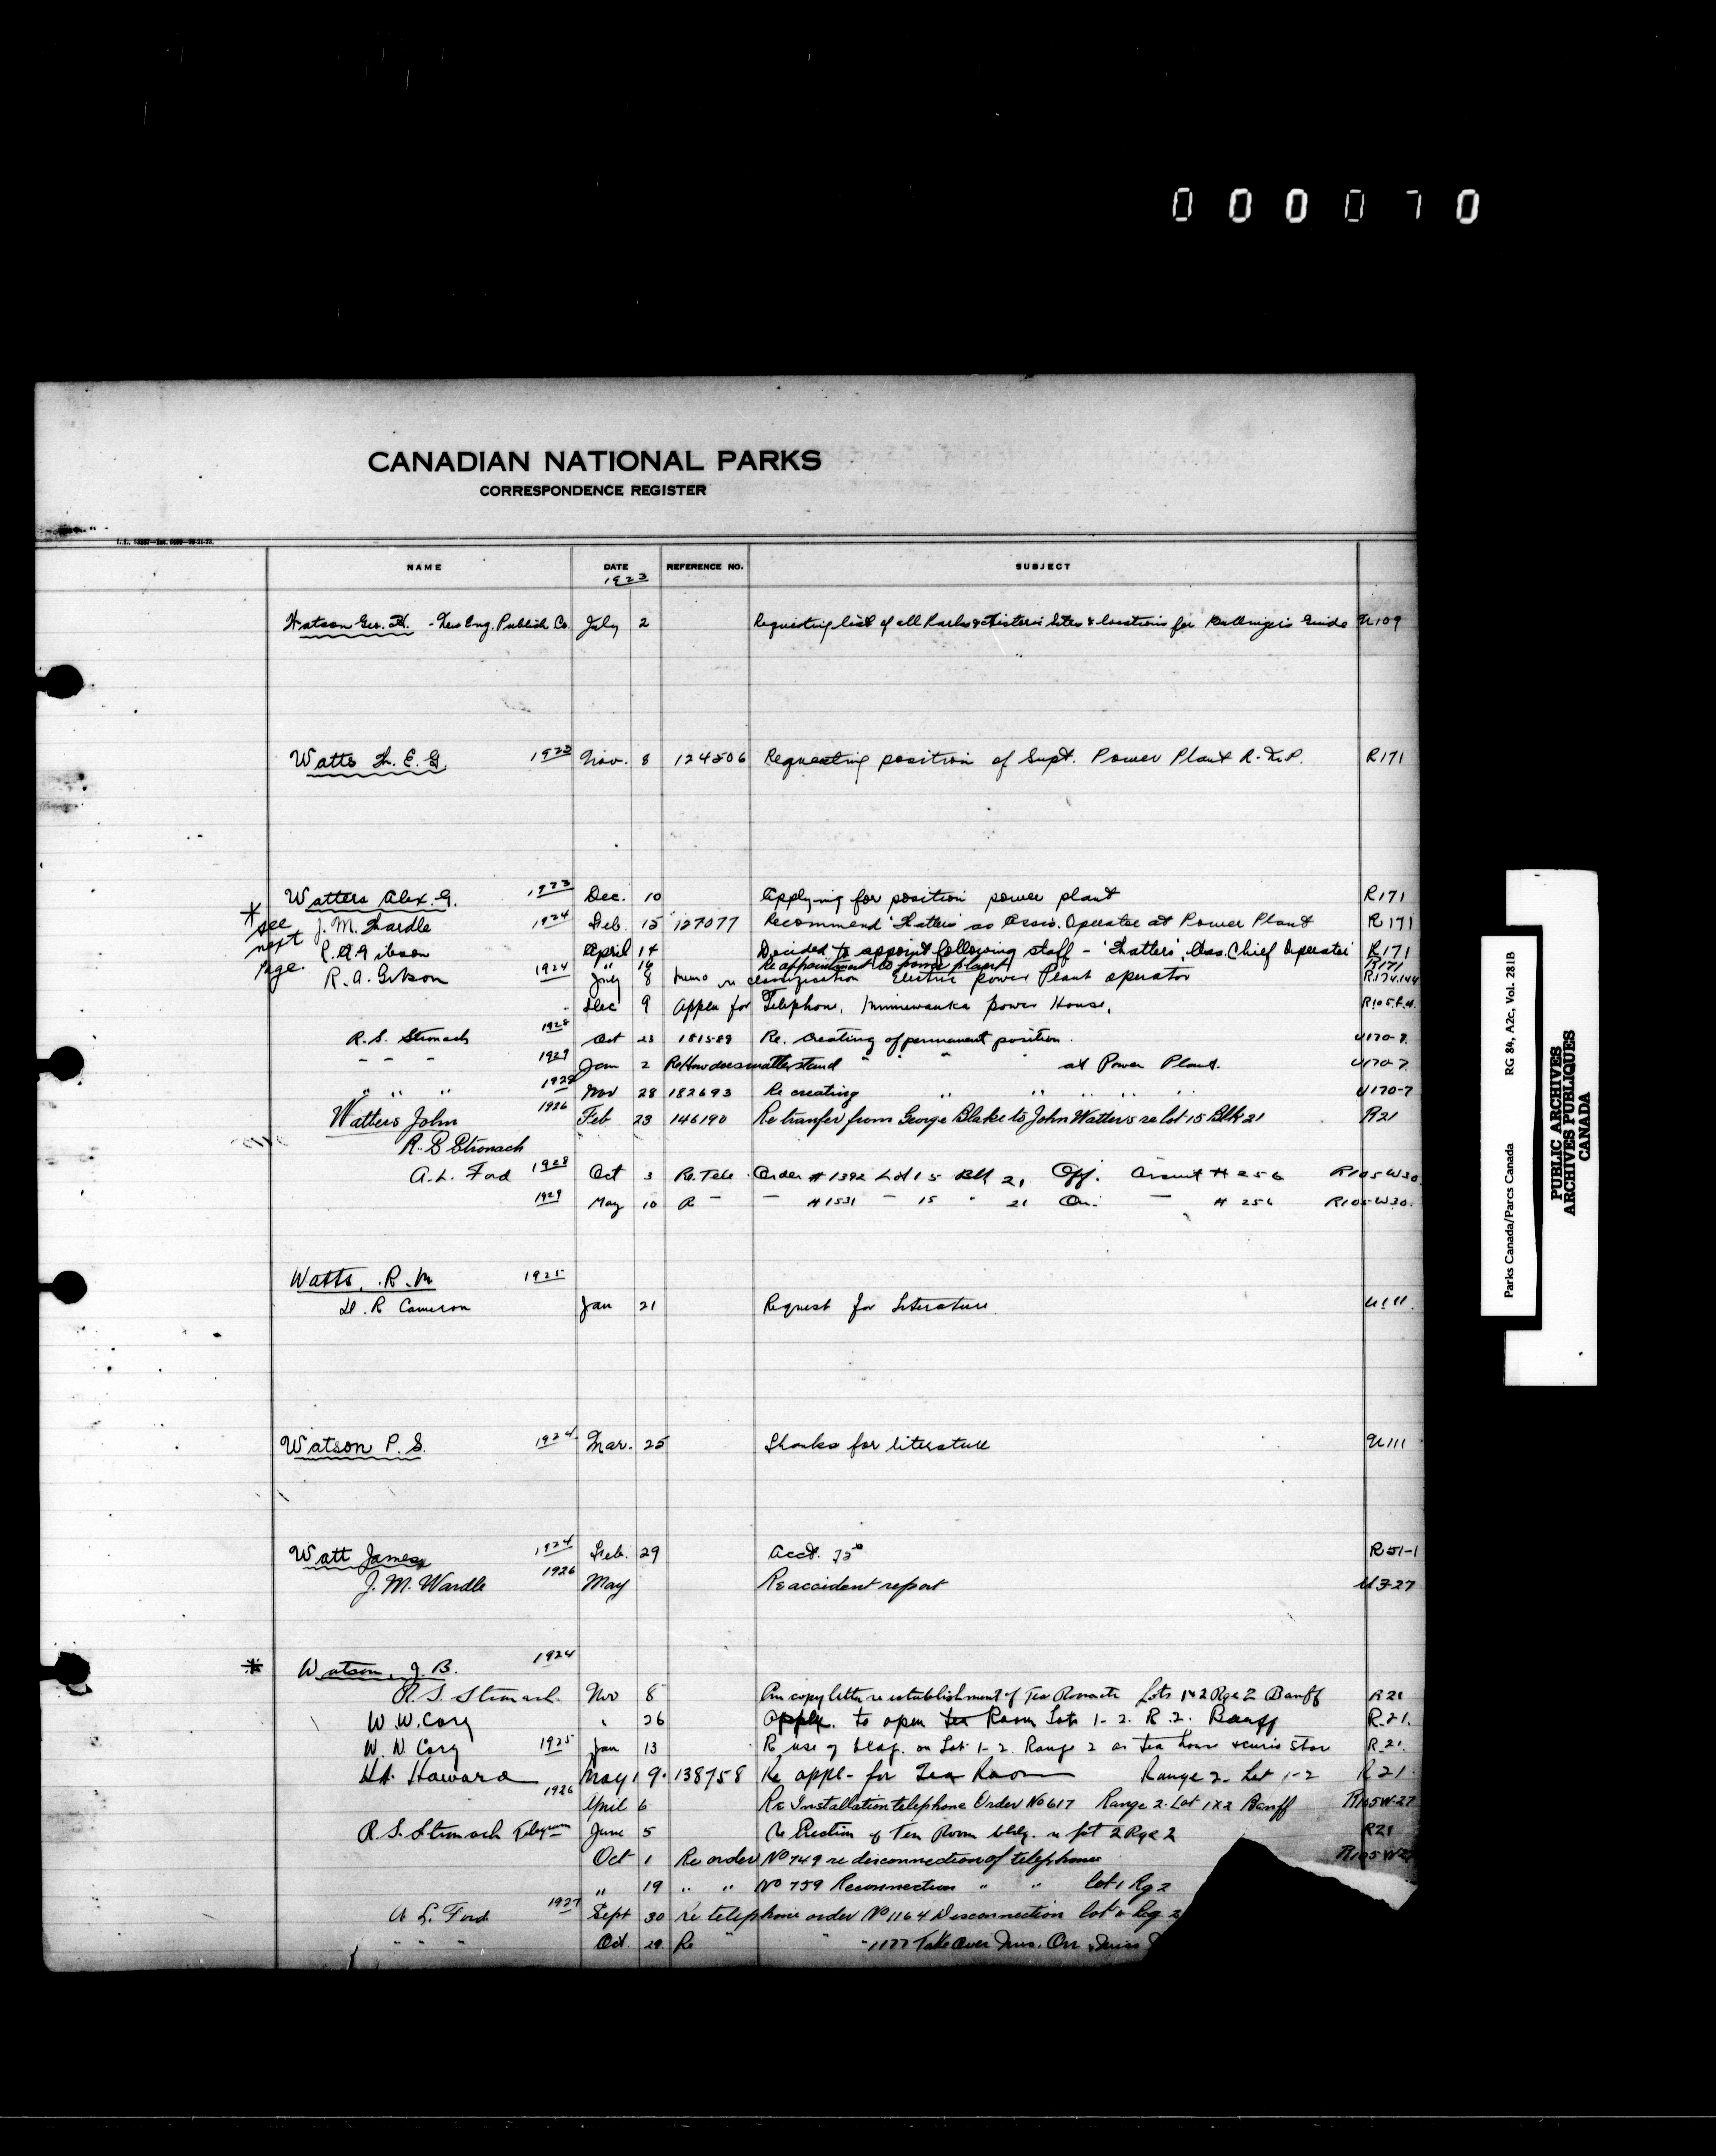 000070
CANADIAN NATIONAL PARKS
CORRESPONDENCE REGISTER
NAME DATE REFERENCE NO. SUBJECT
1923
Watson Geo. H. - New Eng. Publish Co. July 2 Requesting list of all Parks & Historic Sites & locations for Guide U109
Watts E. G. 1923 Nov. 8 124506 Requesting position of Supt. Power Plant R.M.P. R171
Watters Alex. G. 1923 Dec. 10 Applying for position power plant R171
* see next page
J. M. Wardle 1924 Feb. 15 127077 Recommend 'Watters' as Assis. Operator at Power Plant R171
R. A. Gibson April 14 Decided to appoint following staff - 'Watters', Ass. Chief Operator R171
" 16 Re appointment to power plant R171
R. A. Gibson 1924 July 8 memo re classification Electric power Plant operator R.174.144
Dec 9 Applen for Telephone, Minnewanka power House. R105.P.M.
R. S. Stronach 1928 Oct 23 181589 Re. Creating of permanent position. U170-7.
" " " 1929 Jan 2 Re How does matter stand " " " at Power Plant. U170-7.
" " " 1928 Nov 28 182693 Re creating " " " " " U170-7
Watters John 1926 Feb 23 146190 Re tranfer from George Blake to John Watters re lot 15 Blk 21 R21
R. S Stronach
A. L. Ford 1928 Oct 3 Re. Tele. Order # 1392 Lot 15 Blk 21 Off. Circuit # 256 R105-W30
1929 May 10 R - - # 1531 - 15 " 21 On. - # 256 R105-W30.
Watts, R. M 1925
D. R Cameron Jan 21 Request for Literature U111.
Watson P. S. 1924 Mar. 25 Thanks for literature U111
Watt James 1924 Feb. 29 Acct. R51-1
J. M. Wardle 1926 May Re accident report U3-27
* Watson, J. B. 1924
R. S. Stronach Nov 8 copy letter re establishment of Tea Room etc Lots 1&2 Rge 2 Banff R21
W. W. Cory " 26 Apply. to open Tea Room Lots 1-2. R.2. Banff R.21.
W. W. Cory 1925 Jan 13 Re use of bldg. on Lot 1-2. Range 2 as tea house & curio store R.21.
Howard May 19. 138758 Re appl- for Tea Room Range 2- Lot 1-2 R21
1926 April 6 Re Installation telephone Order No 617 Range 2-Lot 1X2 Banff R105W-27
R. S. Stronach Telegram June 5 Re Erection of Tea Room bldg. on Lot 2 Rge 2 R21
Oct 1 Re order No 749 re disconnection of telephone R105 W27
" 19 " " No 759 Reconnection " " lot 1 Rg 2
A. L. Ford 1927 Sept 30 re telephone order No 1164 Disconnection lot Rg 2
" " " Oct. 29 Re " " - 1177 Take Over Mrs. Orr & Miss
RG 84, A2c, Vol. 281B
Parks Canada/Parcs Canada
PUBLIC ARCHIVES
ARCHIVES PUBLIQUES
CANADA